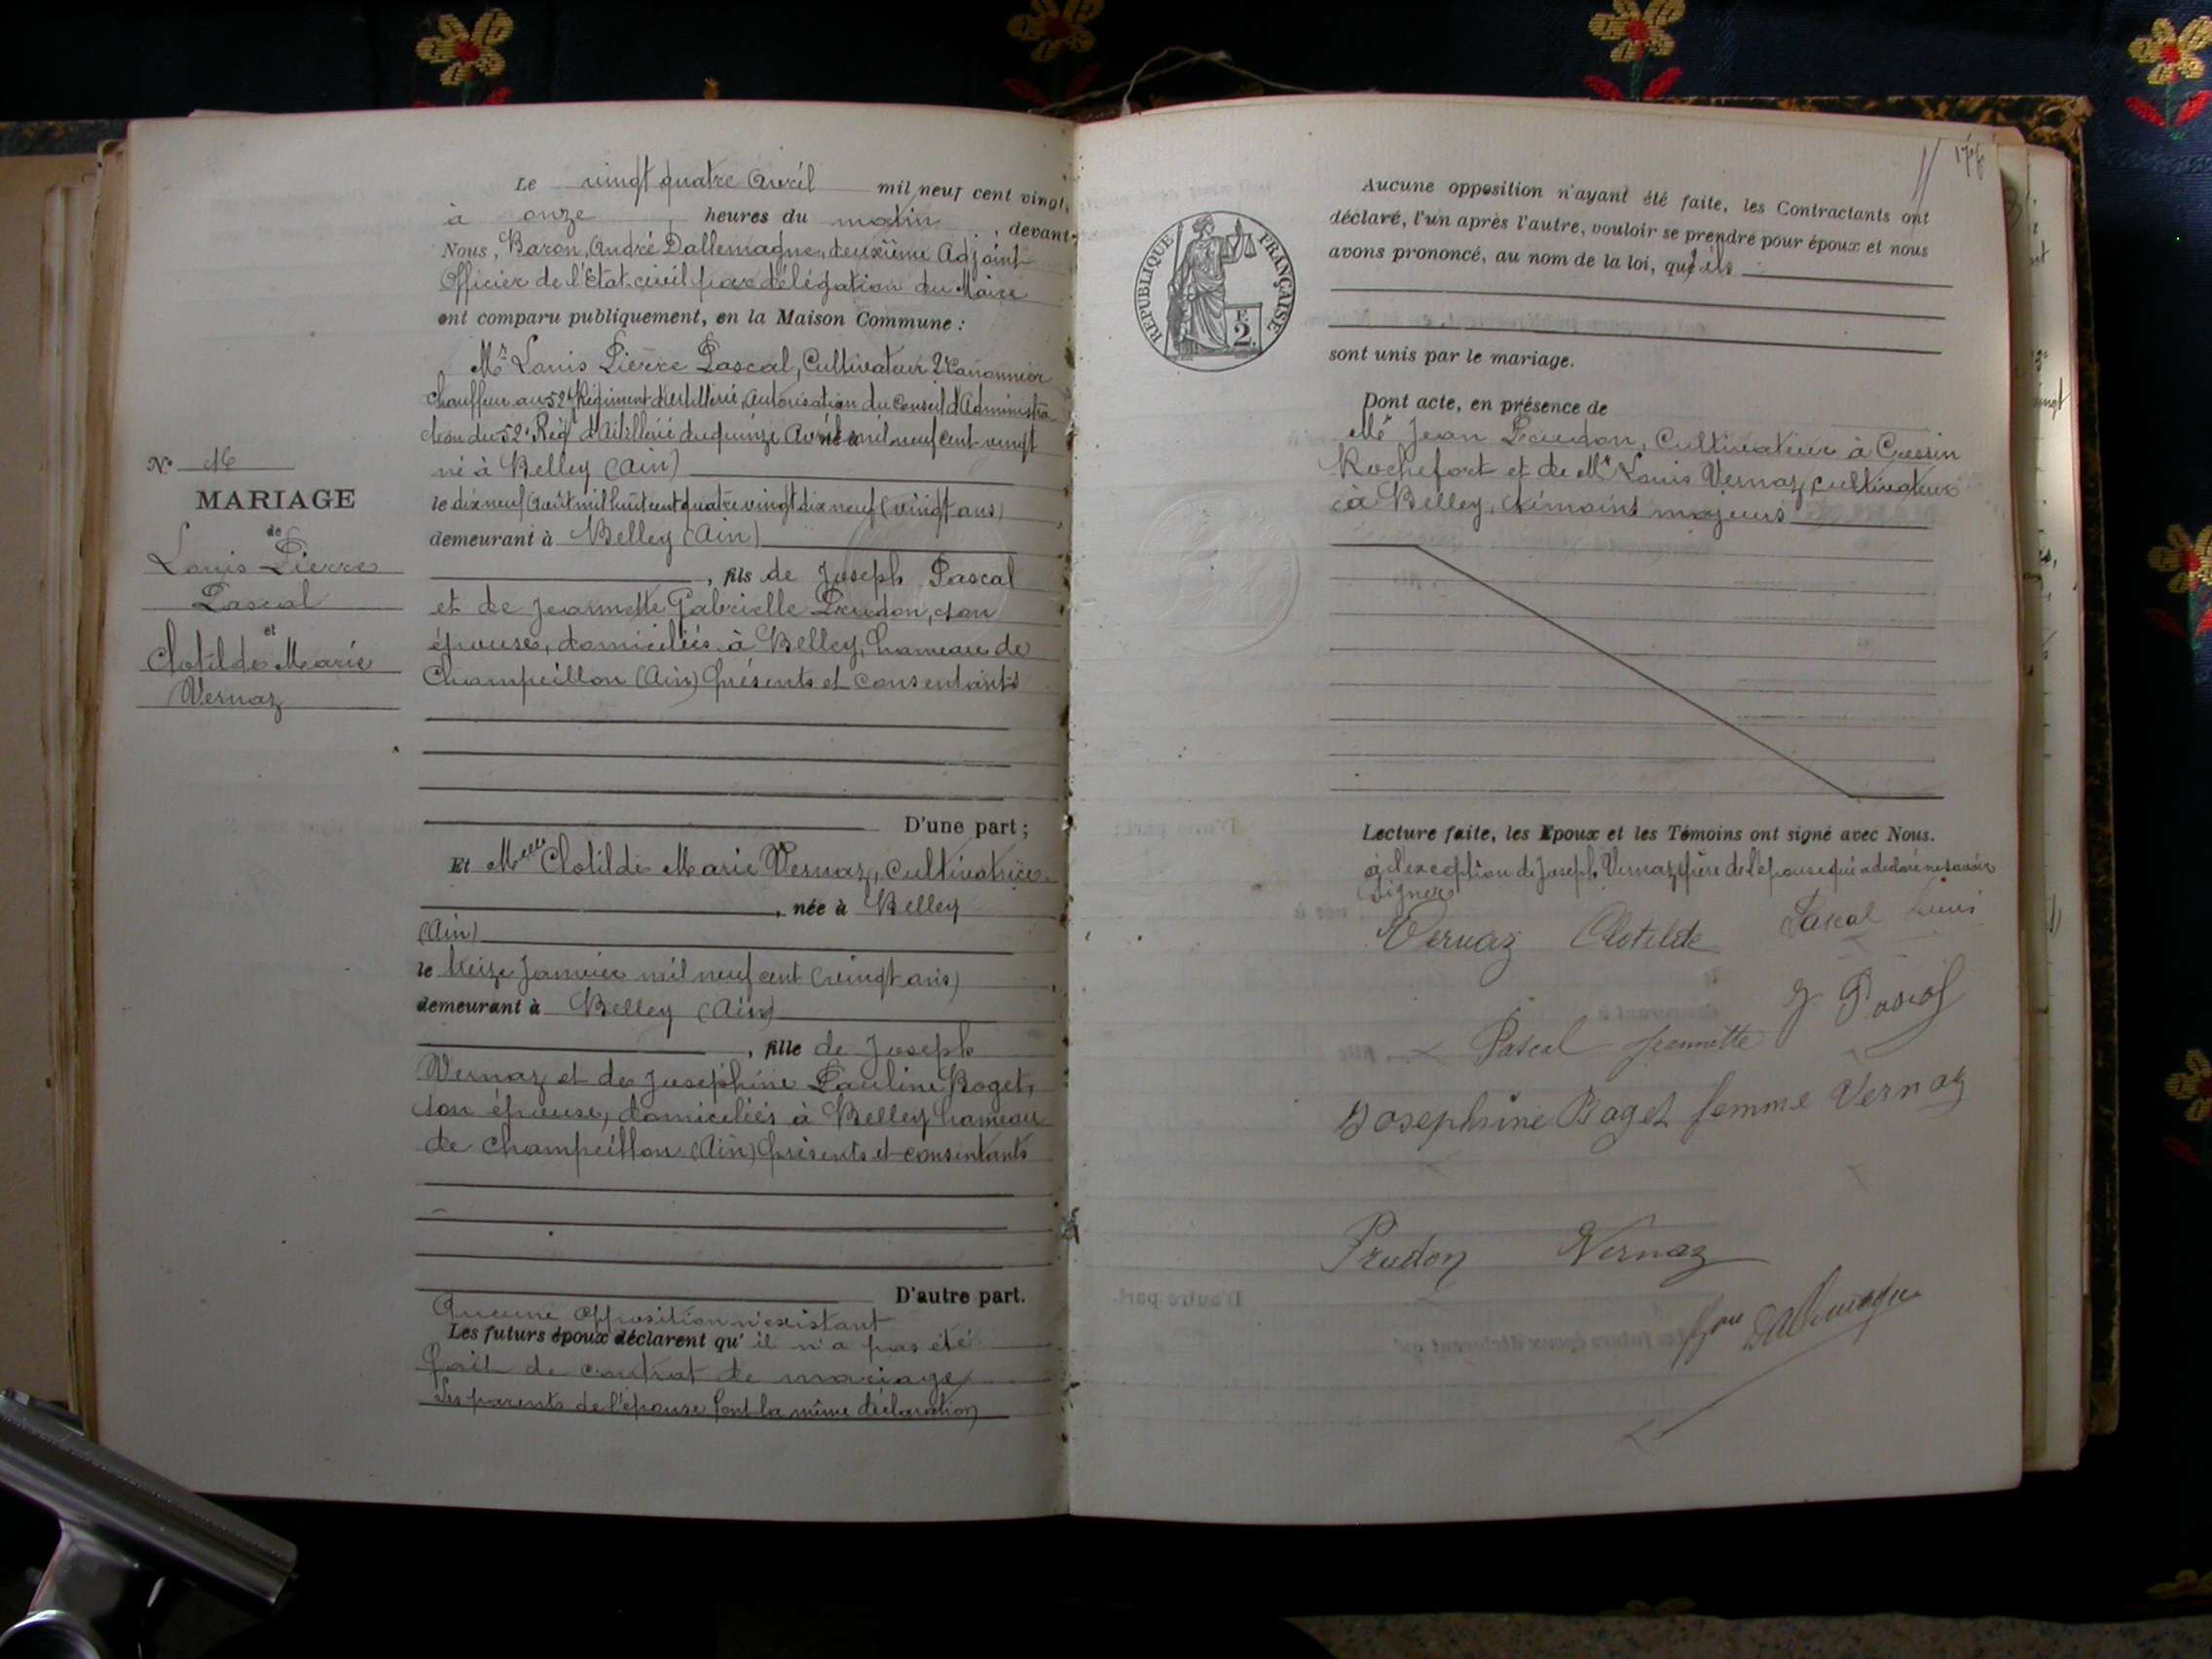 Le vingt quatre Avril mil neuf cent vingt,
à onze heures du matin, devant
Nous, Baron, André Dallemagne, deuxième Adjoint
Officier de l'Etat-civil par délégation du Maire
ont comparu publiquement, en la Maison Commune :
Mr Louis Pierre Pascal, Cultivateur 2e Canonnier
Chauffeur au 52e Régiment d'Artillerie, Autorisation du Conseil d'Administra
tion du 52e Régt d'Artillerie du quinze Avril mil neuf cent vingt
né à Belley (Ain)
le dix neuf Août mil huit cent quatre vingt dix neuf (vingt ans)
demeurant à Belley (Ain)
, fils de Joseph Pascal
et de Jeannette Gabrielle Prudon, son
épouse, domiciliés à Belley, hameau de
Champeillon (Ain) présents et consentants
D'une part ;
N° 16
MARIAGE
de
Louis Pierre
Pascal
et
Clotilde Marie
Vernaz
Et Melle Clotilde Marie Vernaz, Cultivatrice
, née à Belley
(Ain)
le treize Janvier mil neuf cent (vingt ans)
demeurant à Belley (Ain)
, fille de Joseph
Vernaz et de Joséphine Pauline Boget,
son épouse, domiciliés à Belley hameau
de Champeillon (Ain) présents et consentants
D'autre part.
Aucune opposition n'existant
Les futurs époux déclarent qu'il n'a pas été
fait de contrat de mariage
Les parents de l'épouse font la même déclaration
RÉPUBLIQUE FRANÇAISE
F.
2.
Aucune opposition n'ayant été faite, les Contractants ont
déclaré, l'un après l'autre, vouloir se prendre pour époux et nous
avons prononcé, au nom de la loi, qu'ils
sont unis par le mariage.
Dont acte, en présence de
Mr Jean Prudon, Cultivateur à Cressin
Rochefort et de Mr Louis Vernaz, cultivateur
à Belley, témoins majeurs
Lecture faite, les Epoux et les Témoins ont signé avec Nous.
à l'exception de Joseph Vernaz, père de l'épouse qui a déclaré ne savoir
signer
Vernaz Clotilde Pascal Louis
J Pascal
Pascal Jeannette
Josephine Boget femme Vernaz
Prudon Vernaz
Bon Dallemagne